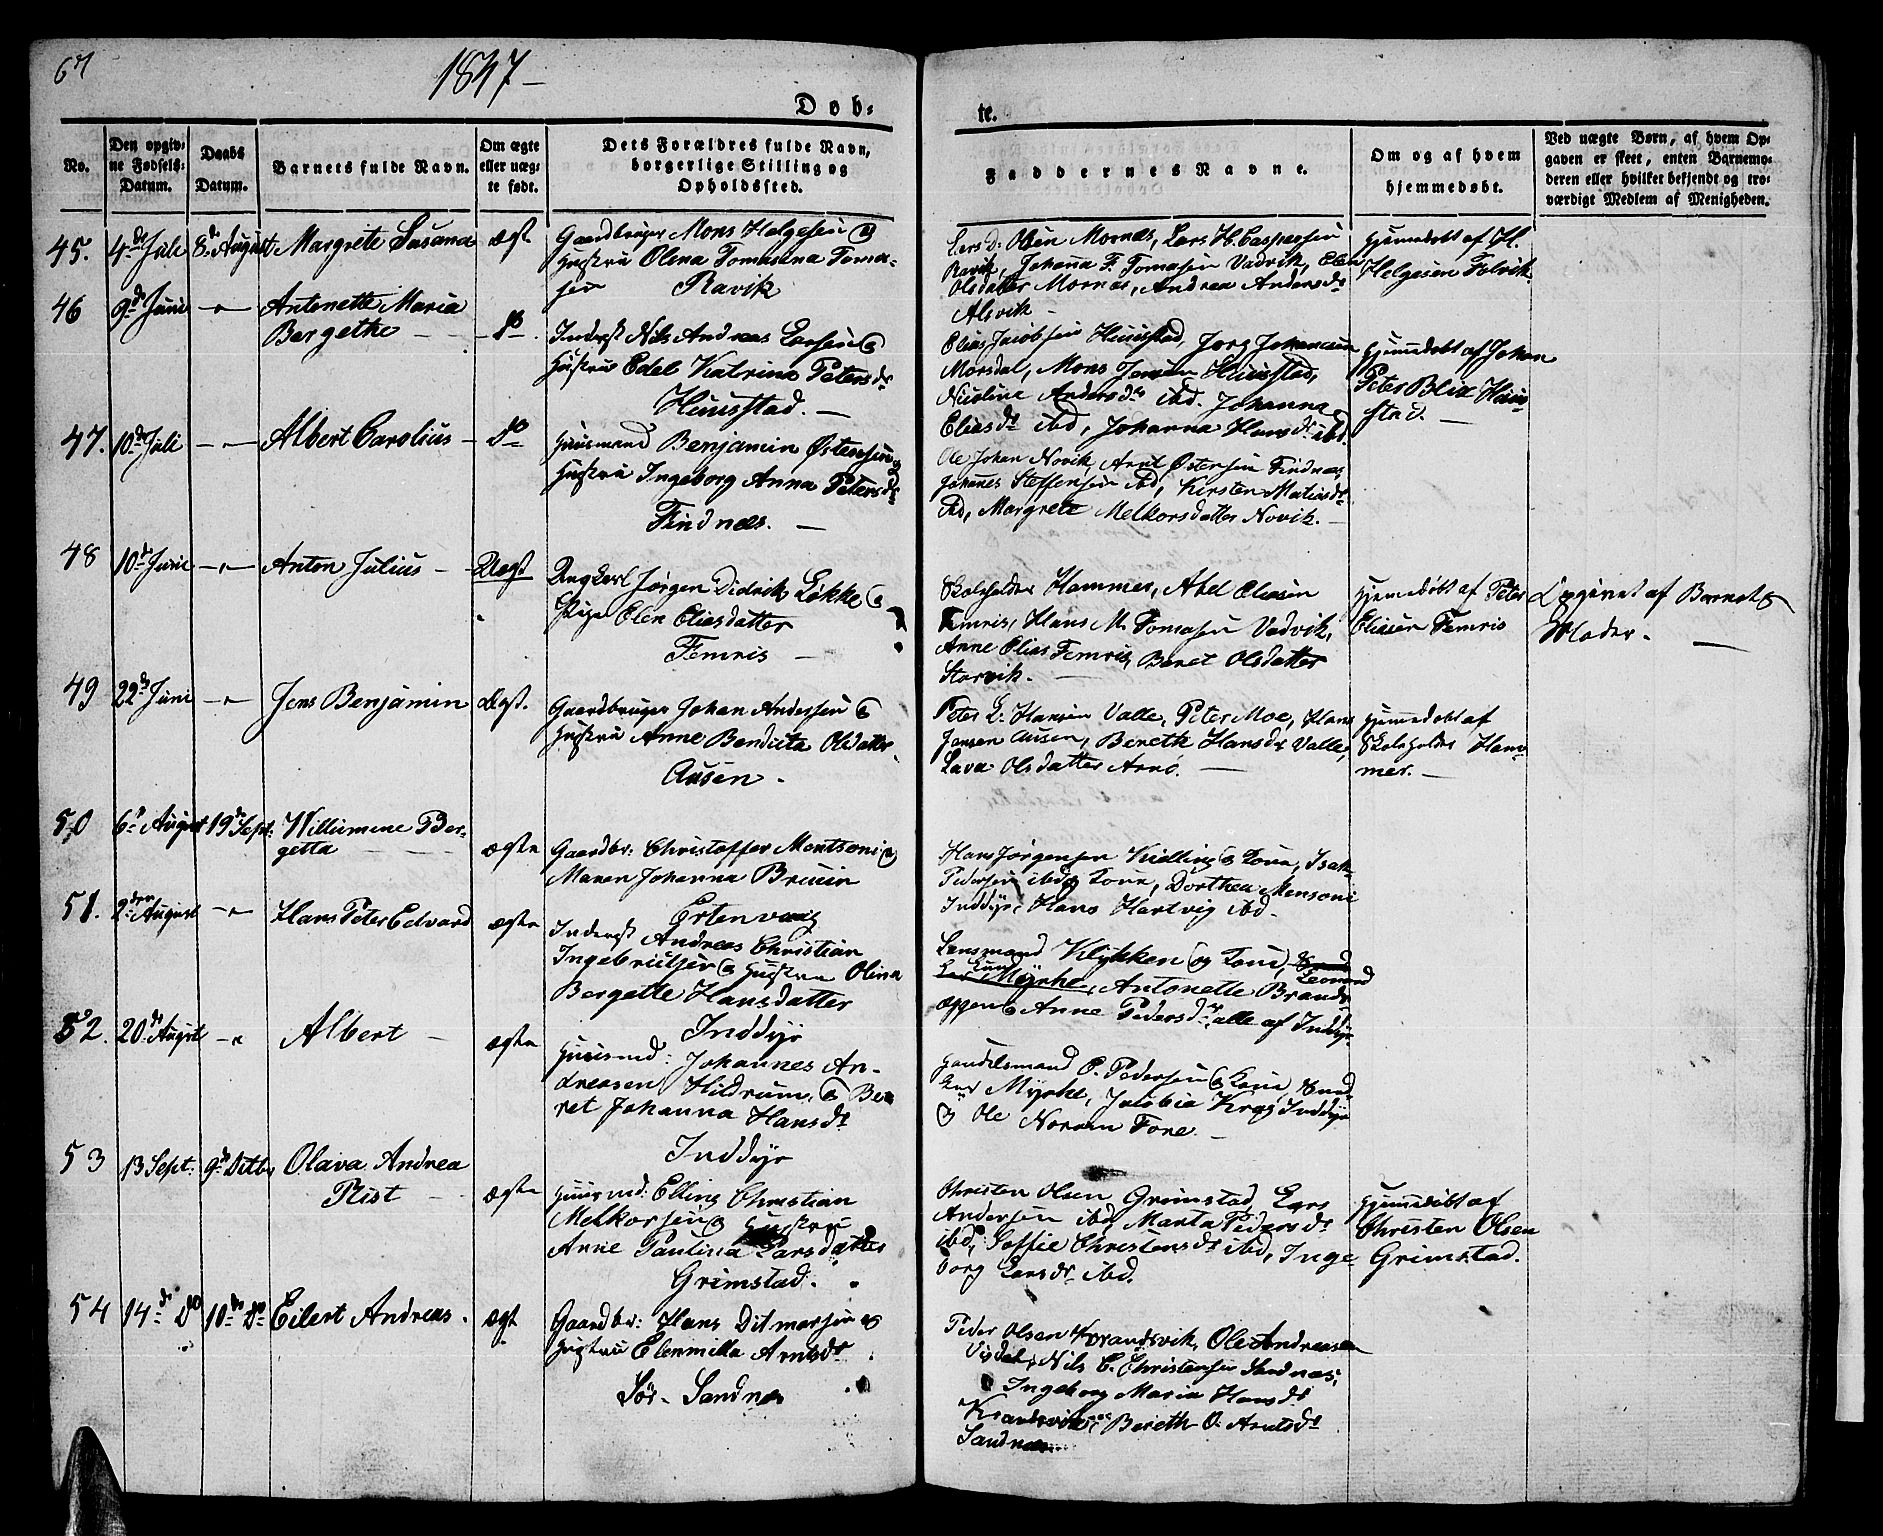 67
1847 –
Dob=
te.
No.
Den opgiv=
ne Fødsels=
Datum.
Daabs
Datum.
Barnets fulde Navn.
Om ægte
eller uæg=
te født.
Dets Forældres fulde Navn,
borgerlige Stilling og
Opholdssted.
Faddernes Navne.
Om og af hvem
hjemmedøbt.
Ved uægte Børn, af hvem Op=
gaven er skeet, enten Barnemo=
deren eller hvilket bekjendt og tro=
værdigt Medlem af Menigheden.
45. 4de Juli 8de August Margrete Susana ægt
Gaardbruger Mons Helgesen og
Hustru Olena Tomasina Toma-
sen Ravik
Lars D. Olsen Mornæs, Lars H. Caspersen
Ravik, Johanna F. Tomasen Vadvik, Elen
Olsdatter Mornæs, Andrea Andersdr
Alsvik –
Hjemmedøbt af H.
Helgesen Felvik
46 9de Juni –"– Antonette Maria
Bergethe – do.
Inderst Nils Andreas Larsen og
Hustru Edel Katrina Petersdr
Huusstad. –
Elias Jacobsen Huusstad, Jørg Johansen
Morsdal, Mons Jensen Huusstad,
Nicoline Andersdr ibd. Johanna
Eliasdr ibd, Johanna Hansdr ibd.
Hjemmedøbt af Johan
Peter Blix Huus-
stad. –
47. 10de Juli –"– Albert Carolius – do
Huusmand Benjamin Østensen og
Hustru Ingeborg Anna Petersdr
Findnæs. –
Ole Johan Novik, Arnt Østensen Findnæs
Johannes Steffensen ibd, Kirsten Matiasdr
ibd, Margrete Melkorsdatter Novik. –
48 10de Juni –"– Anton Julius – Uægt
Ungkarl Jørgen Didrik Løkke og
Pige Elen Eliasdatter
Femris –
Skoleholder Hammer, Abel Eliasen
Femris, Hans M. Tomasen Vadvik,
Anne Elias Femris, Beret Olsdatter
Storvik. –
Hjemmedøbt af Peter
Eliasen Femris
Opgivet af Barnets
Moder. –
49 22de Juni –"– Jens Benjamin Ægt.
Gaardbruger Johan Andersen og
Hustru Anne Bendicta Olsdatter
Ausen –
Peter L. Hansen Valle, Peter Moe, Hans
Jensen Ausen, Bereth Hansdr Valle,
Lava Olsdatter Arnø. –
Hjemmedøbt af
Skoleholder Ham-
mer. –
50 6te August 19de Sept: Willumine Ber-
getta – ægte
Gaardbr: Christoffer Montsoni og
Maren Johanna Bruuin
Ertenvaag
Hans Jørgensen Kielling og Kone, Isak
Pedersen ibd og Kone, Dorthea Mensoni
Inddyr, Hans Hartvig ibd.
51. 2den August –"– Hans Peter Edvard ægte
Inderst Andreas Christian
Ingebrigtsen og Hustru Olina
Bergette Hansdatter
Inddyr
Lensmand Klykken og Kone,
Myrhe, Antonette Brandt
Anne Pedersdr, alle af Inddyr
52. 20de August –"– Albert – ægte
Huusmd: Johannes An-
dreasen Hildrum, og Be-
ret Johanna Hansdr
Inddyr
Handelsmand O. Pedersen og Kone, Knud
Myrhe, Jacobia Krag Inddyr
og Ole Norum Fore. –
53 13 Sept: 9de Octbr Olava Andrea
Rist – ægte
Huusmd. Elling Christian
Melkorsen og Hustru
Anne Paulina Larsdatter
Grimstad.
Christen Olsen Grimstad, Lars
Andersen ibd, Marta Pedersdr
ibd, Soffie Christensdr ibd, Inge-
borg Larsdr ibd.
Hjemmedøbt af
Christen Olsen
Grimstad.
54 14de do 10de do Eilert Andreas. ægt
Gaardbr: Hans Ditmarsen og
Hustru Elenmilla Arntsdr
Sør-Sandnæs
Peder Olsen Kvandsvik, Ole Andreasen
Visdal, Nils C. Christensen Sandnæs,
Ingeborg Maria Hansdr
Kvandsvik, Bereth O. Arntsdr
Sandnæs